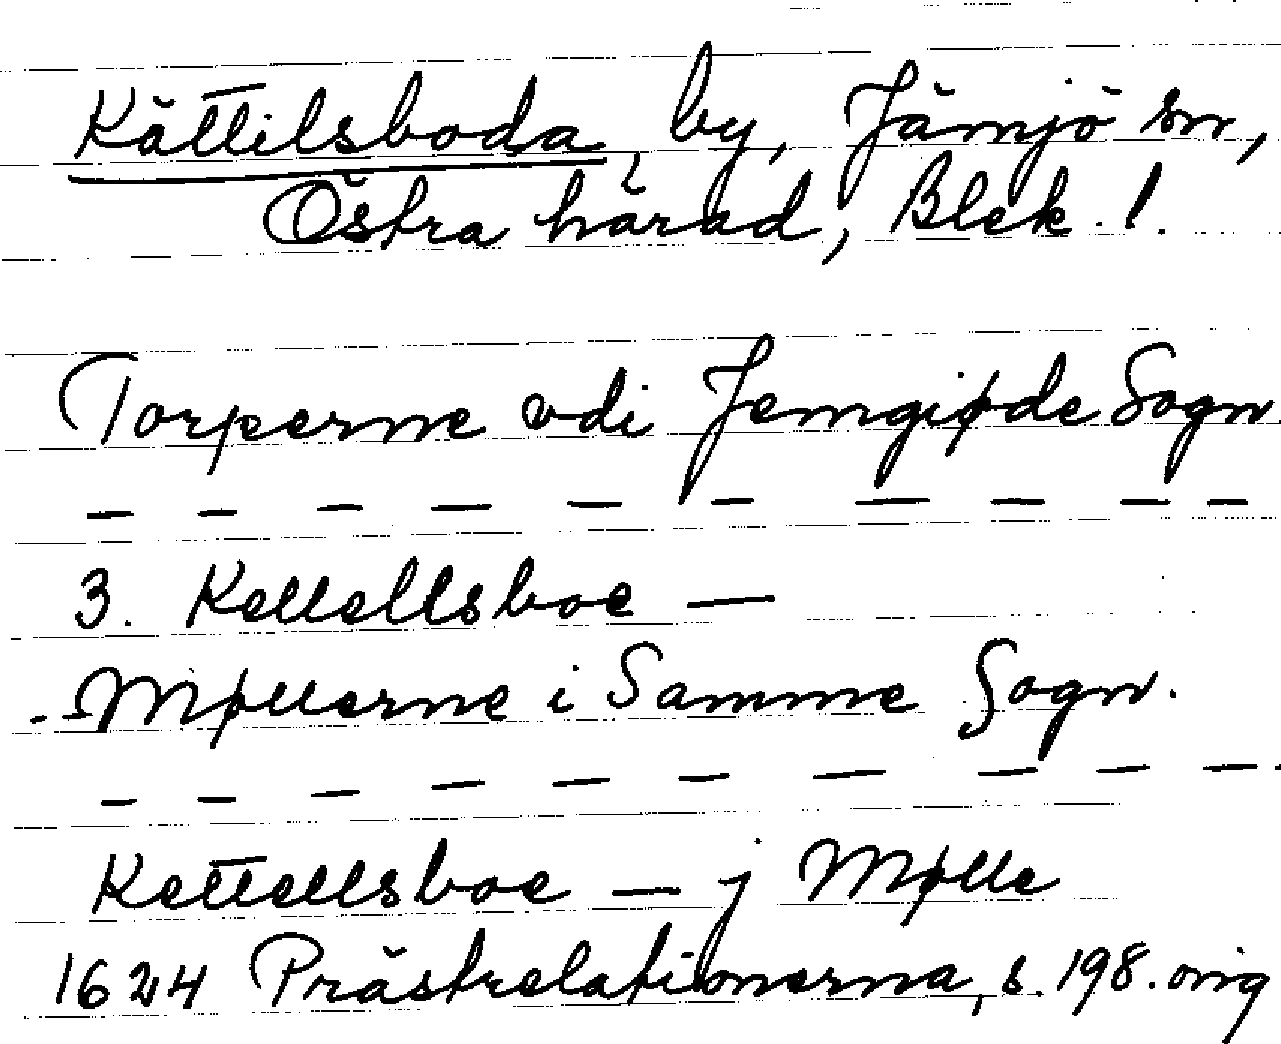 Kättilsboda, by, Jämjö sn,
Östra härad, Blek. l.
Torperne vdi Jemgiøde Sogn
— — — — — — — — — —
3. Kellellsboe —
- - Møllerne i Samme Sogn.
— — — — — — — — — —
Kettellsboe — j Mølle
1624 Prästrelationerna, s. 198. orig